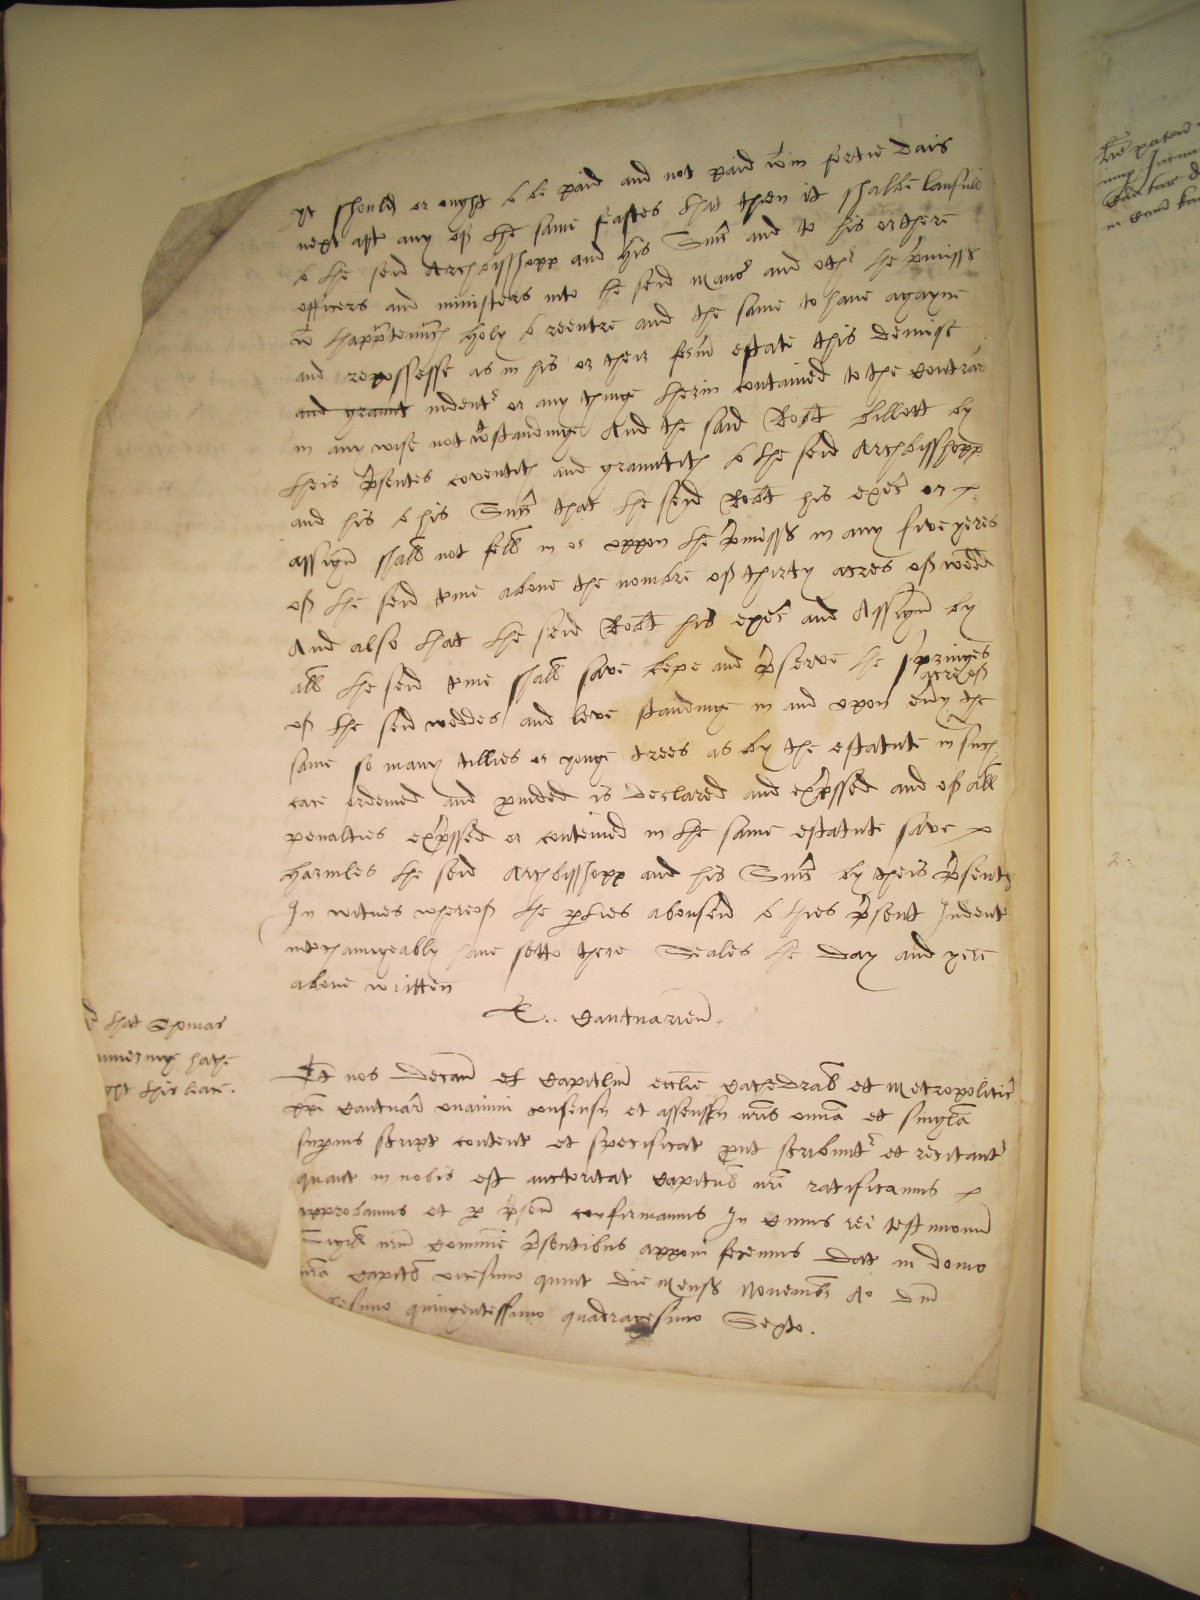 yt should or ought to be paid and not paid wtin fortie Dais
next aft any of the same feastes that then it shalbe laufull
to the seid Archbisshopp and his Succ and to his or there
officers and ministers into the seid man and oth the pmisss
wt thapptenncs holy to reentre and the same to have agayne
and repossesse as in his or their form estate this demise
and graunt indent or any thinge herin contained to the contrar
in any wise not wtstandinge And the said Robt Billett by
theis psentes coventith and grauntith to the seid Archbisshopp
and his to his Succ that the seid Robt his exec or
assign shall not fell in or uppon the pmisss in any five yeres
of the seid tme above the nombre of thirty acres of wodd
And also that the seid Robt his exec and Assign by
all the seid tme shall save kepe and pserve the springes
of the seid woddes and leve standinge in and upon evy acre of the
same so many tillies or yonge trees as by the estatute in such
case ordeined and pvided is Declared and expssed and of all
penalties expssed or conteined in the same estatute save
harmles the seid Archbisshopp and his Succ by theis psents
In witnes whereof the pties abouseid to thies psent Indent
interchaungeably have sette there Seales the Day and yere
above written
T.. Cantuarien.
that Thomas
hathe
ght this leace.
Et nos Decan et Capitlm ecclie Cathedral et Metropolitic
xpi Cantuar unanimi consensu et assensu nris omnia et singla
supius script content et specificat put scribunt et recitant
quant in nobis est auctoritat Capitul nri ratificamus
approbamus et p psen confirmamus In Cuius rei testimonium
Sigill nrm Commune psentibus apponi fecimus Dat in domo
nra Capitl vicesimo quint die Mensis Novembr Ao Dni
quingentessimo quadragesimo Sexto.